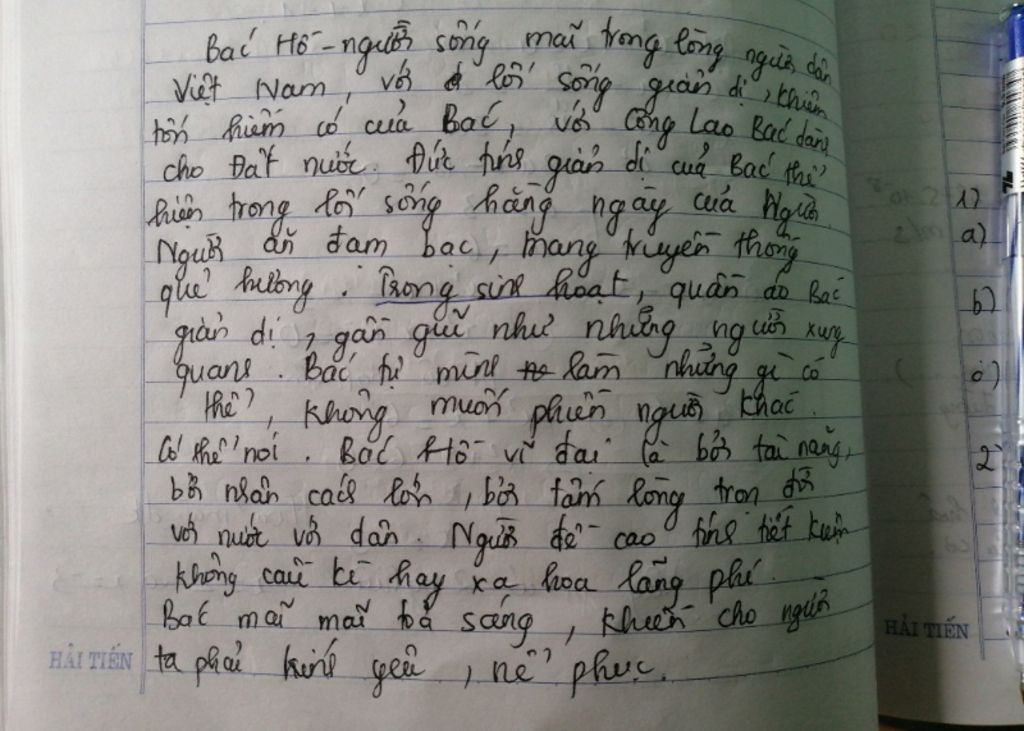 Bác Hồ - người sống mãi trong lòng người dân
Việt Nam, với lối sống giản dị, khiêm
tốn hiếm có của Bác, với Công Lao Bác dành
cho Đất nước. Đức tính giản dị của Bác thể
hiện trong lối sống hằng ngày của Người.
Người ăn đạm bạc, mang truyền thống
quê hương. Trong sinh hoạt, quần áo Bác
giản dị, gần gũi như những người xung
quanh. Bác tự mình làm những gì có
thể, không muốn phiền người khác.
Có thể nói. Bác Hồ vĩ đại là bởi tài năng,
bởi nhân cách lớn, bởi tấm lòng trọn đời
với nước với dân. Người đề cao tính tiết kiệm
không cầu kì hay xa hoa lãng phí.
Bác mãi mãi toả sáng, khiến cho người
ta phải kính yêu, nể phục.
HẢI TIẾN
1)
a)
b)
c)
2)
HẢI TIẾN